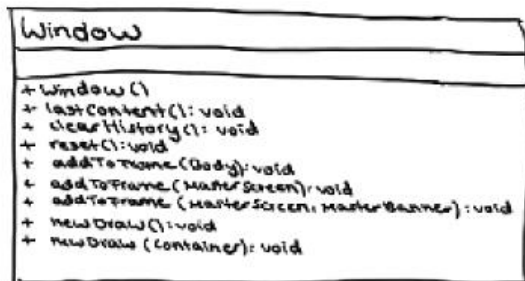 Window
+ Window()
+ lastContent(): void
+ clearHistory(): void
+ reset(): void
+ addToFrame(Body): void
+ addToFrame(MasterScreen): void
+ addToFrame(MasterScreen, MasterBanner): void
+ newDraw(): void
+ newDraw(Container): void